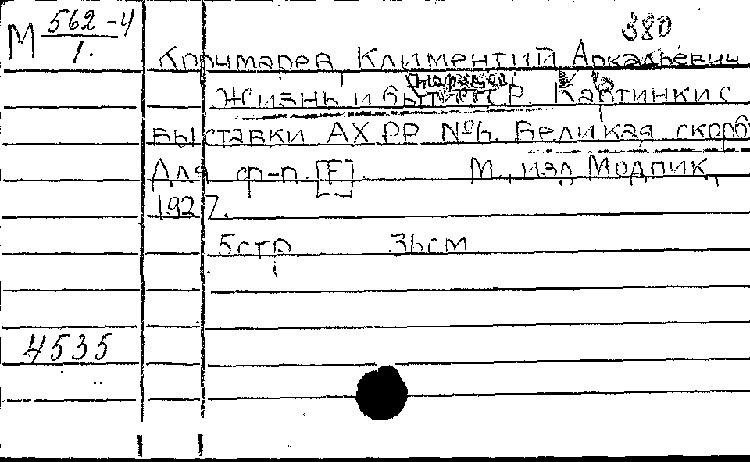 М 562-4
1.
380
Корчмарев, Климентий Аркадьевич
народов
Жизнь и быт СССР Картинки с
выставки АХРР № 6. Великая скорбь
Для ф-п. [F] М., изд. Модпик,
1927.
5 стр 36 см
4535